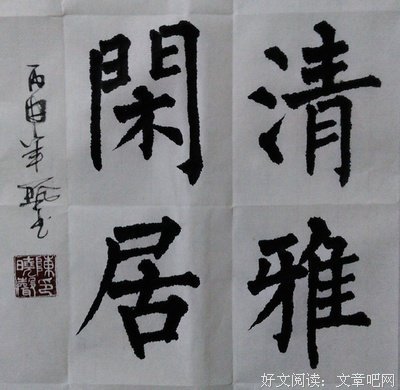 清雅
閑居
丙申年
陳印
好文阅读：文章吧网